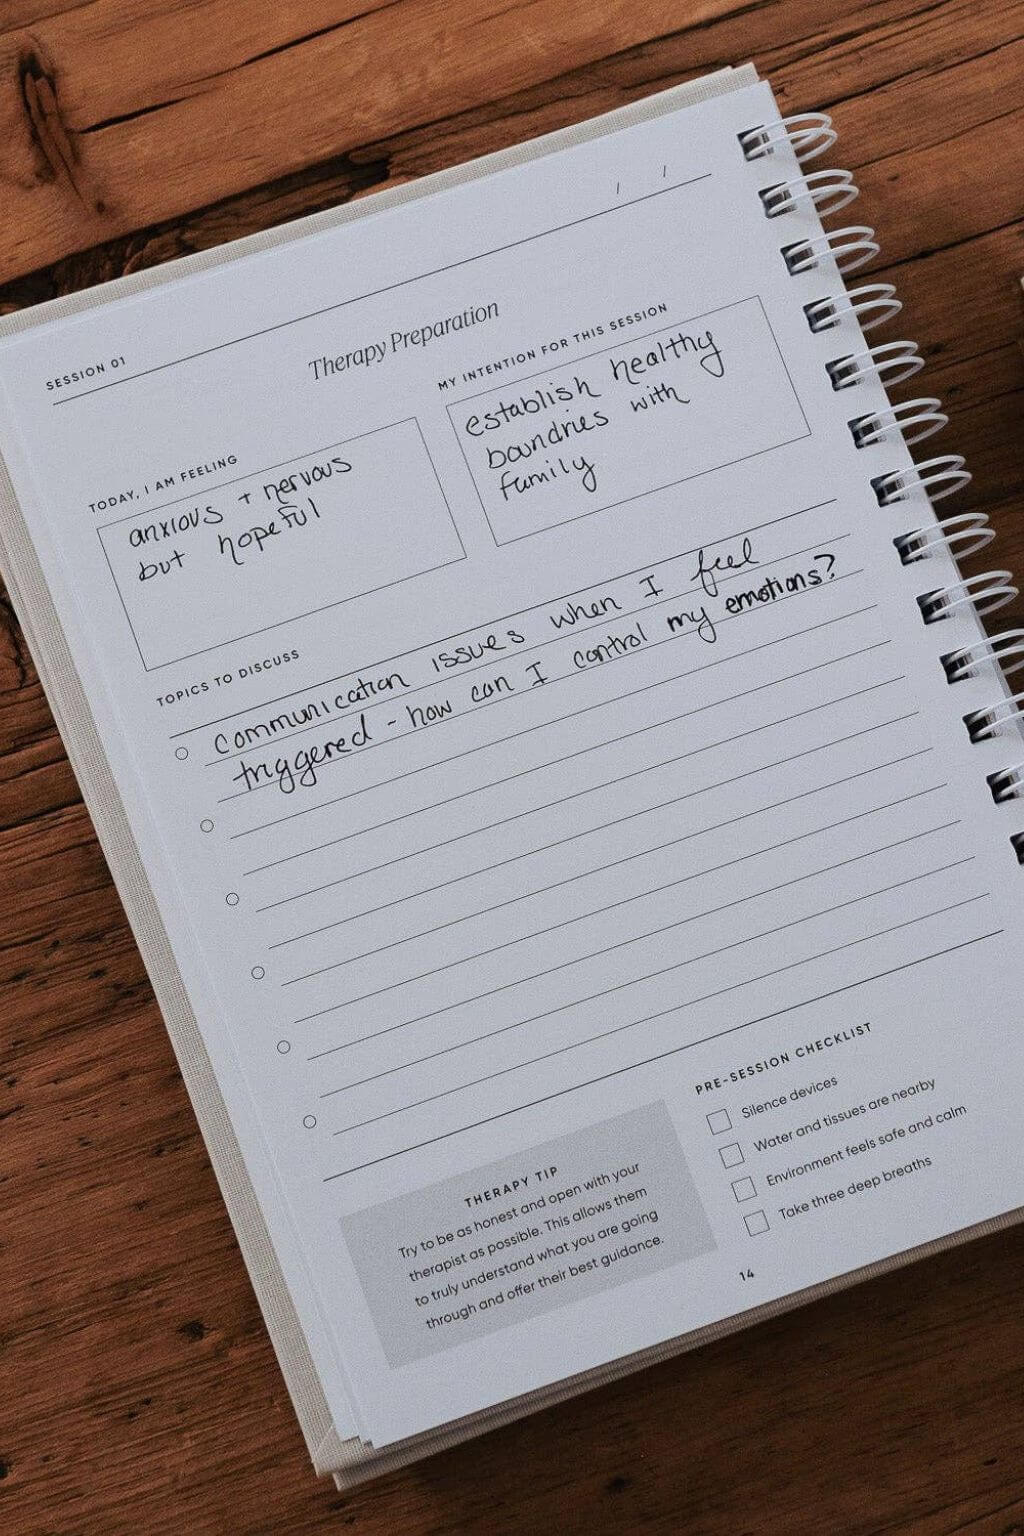 / /
SESSION 01
Therapy Preparation
TODAY, I AM FEELING
anxious + nervous
but hopeful
MY INTENTION FOR THIS SESSION
establish healthy
boundries with
family
TOPICS TO DISCUSS
communication issues when I feel
triggered - how can I control my emotions?
THERAPY TIP
Try to be as honest and open with your
therapist as possible. This allows them
to truly understand what you are going
through and offer their best guidance.
PRE-SESSION CHECKLIST
Silence devices
Water and tissues are nearby
Environment feels safe and calm
Take three deep breaths
14